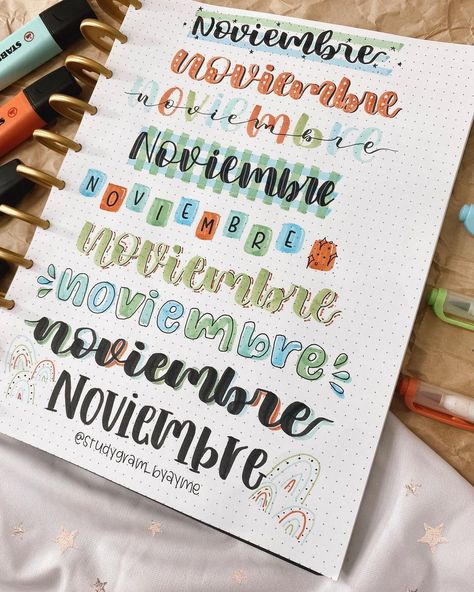 Noviembre
noviembre
noviembre
Noviembre
NOVIEMBRE
noviembre
noviembre
noviembre
Noviembre
@studygram_byayme
STAB
STAB